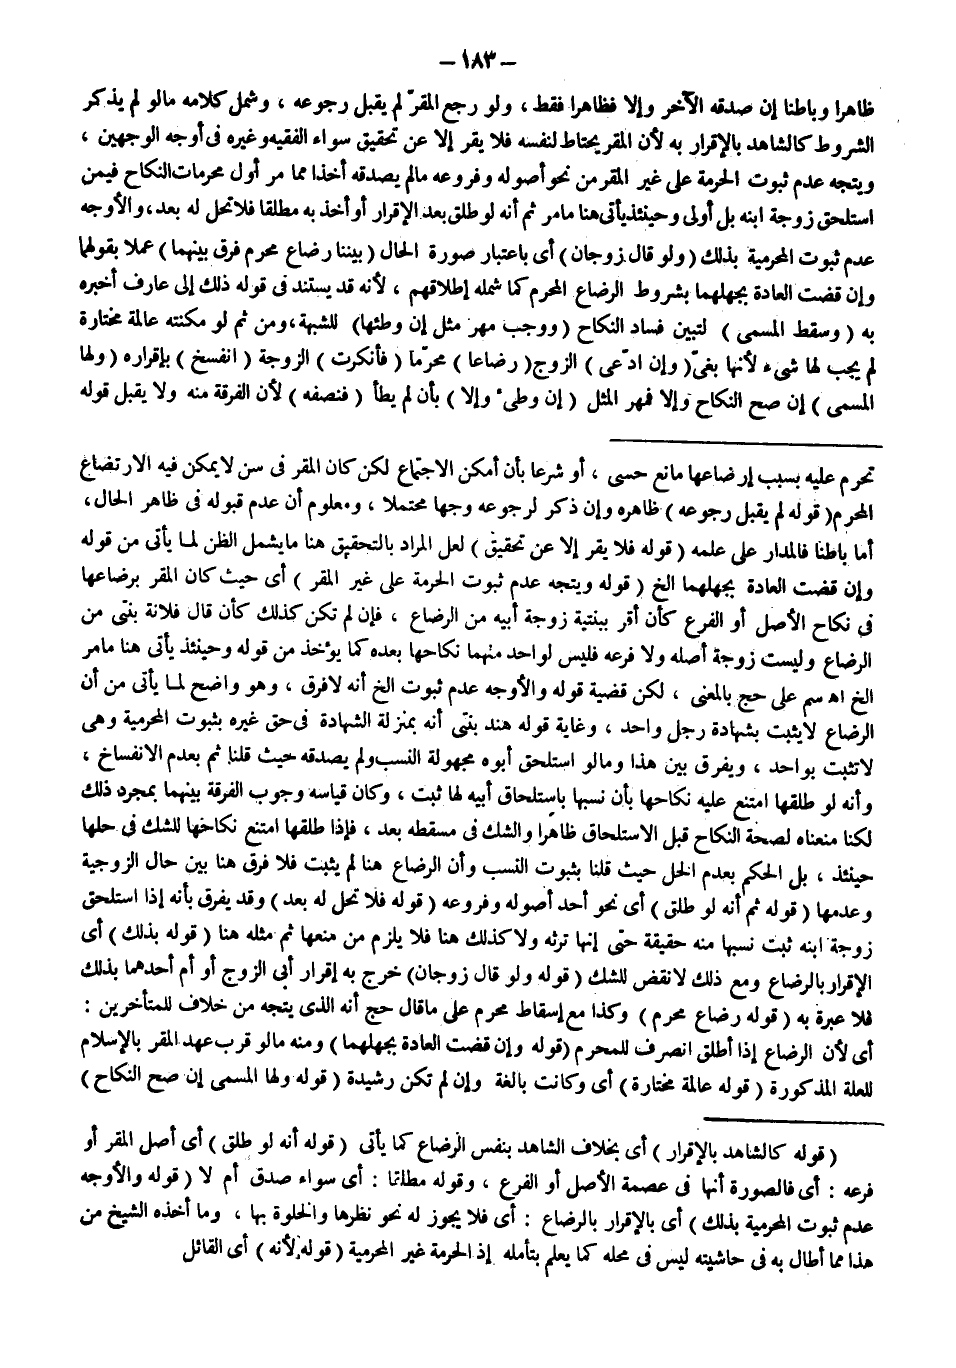 – ١٨٣ –
ظاهرا وباطنا إن صدقه الآخر وإلا فظاهرا فقط ، ولو رجع المقرّ لم يقبل رجوعه ، وشمل كلامه مالو لم يذكر
الشروط كالشاهد بالإقرار به لأن المقر يحتاط لنفسه فلا يقر إلا عن تحقيق سواء الفقيه وغيره فى أوجه الوجهين ،
ويتجه عدم ثبوت الحرمة على غير المقر من نحو أصوله وفروعه مالم يصدقه أخذا مما مر أول محرمات النكاح فيمن
استلحق زوجة ابنه بل أولى وحينئذ يأتى هنا مامر ثم أنه لو طلق بعد الإقرار أو أخذ به مطلقا فلا تحل له بعد ، والأوجه
عدم ثبوت المحرمية بذلك ( ولو قال زوجان ) أى باعتبار صورة الحال ( بيننا رضاع محرم فرق بينهما ) عملا بقولهما
وإن قضت العادة بجهلهما بشروط الرضاع المحرم كما شمله إطلاقهم ، لأنه قد يستند فى قوله ذلك إلى عارف أخبره
به ( وسقط المسمى ) لتبين فساد النكاح ( ووجب مهر مثل إن وطئها ) للشبهة ، ومن ثم لو مكنته عالمة مختارة
لم يجب لها شىء لأنها بغىّ ( وإن ادّعى ) الزوج ( رضاعا ) محرّما ( فأنكرت ) الزوجة ( انفسخ ) بإقراره ( ولها
المسمى ) إن صح النكاح وإلا فمهر المثل ( إن وطىء وإلا ) بأن لم يطأ ( فنصفه ) لأن الفرقة منه ولا يقبل قوله
تحرم عليه بسبب إرضاعها مانع حسى ، أو شرعا بأن أمكن الاجتماع لكن كان المقر فى سن لا يمكن فيه الارتضاع
المحرم ( قوله لم يقبل رجوعه ) ظاهره وإن ذكر لرجوعه وجها محتملا ، ومعلوم أن عدم قبوله فى ظاهر الحال ،
أما باطنا فالمدار على علمه ( قوله فلا يقر إلا عن تحقيق ) لعل المراد بالتحقيق هنا مايشمل الظن لما يأتى من قوله
وإن قضت العادة بجهلهما الخ ( قوله ويتجه عدم ثبوت الحرمة على غير المقر ) أى حيث كان المقر برضاعها
فى نكاح الأصل أو الفرع كأن أقر ببنتية زوجة أبيه من الرضاع ، فإن لم تكن كذلك كأن قال فلانة بنتى من
الرضاع وليست زوجة أصله ولا فرعه فليس لواحد منهما نكاحها بعده كما يؤخذ من قوله وحينئذ يأتى هنا مامر
الخ اه سم على حج بالمعنى ، لكن قضية قوله والأوجه عدم ثبوت الخ أنه لافرق ، وهو واضح لما يأتى من أن
الرضاع لايثبت بشهادة رجل واحد ، وغاية قوله هند بنتى أنه بمنزلة الشهادة فى حق غيره بثبوت المحرمية وهى
لاتثبت بواحد ، ويفرق بين هذا ومالو استلحق أبوه مجهولة النسب ولم يصدقه حيث قلنا ثم بعدم الانفساخ ،
وأنه لو طلقها امتنع عليه نكاحها بأن نسبها باستلحاق أبيه لها ثبت ، وكان قياسه وجوب الفرقة بينهما بمجرد ذلك
لكنا منعناه لصحة النكاح قبل الاستلحاق ظاهرا والشك فى مسقطه بعد ، فإذا طلقها امتنع نكاحها للشك فى حلها
حينئذ ، بل الحكم بعدم الحل حيث قلنا بثبوت النسب وأن الرضاع هنا لم يثبت فلا فرق هنا بين حال الزوجية
وعدمها ( قوله ثم أنه لو طلق ) أى نحو أحد أصوله وفروعه ( قوله فلا تحل له بعد ) وقد يفرق بأنه إذا استلحق
زوجة ابنه ثبت نسبها منه حقيقة حتى إنها ترثه ولا كذلك هنا فلا يلزم من منعها ثم مثله هنا ( قوله بذلك ) أى
الإقرار بالرضاع ومع ذلك لانقض للشك ( قوله ولو قال زوجان ) خرج به إقرار أبى الزوج أو أم أحدهما بذلك
فلا عبرة به ( قوله رضاع محرم ) وكذا مع إسقاط محرم على ماقال حج أنه الذى يتجه من خلاف للمتأخرين :
أى لأن الرضاع إذا أطلق انصرف للمحرم ( قوله وإن قضت العادة بجهلهما ) ومنه مالو قرب عهد المقر بالإسلام
للعلة المذكورة ( قوله عالمة مختارة ) أى وكانت بالغة وإن لم تكن رشيدة ( قوله ولها المسمى إن صح النكاح )
( قوله كالشاهد بالإقرار ) أى بخلاف الشاهد بنفس الرضاع كما يأتى ( قوله أنه لو طلق ) أى أصل المقر أو
فرعه : أى فالصورة أنها فى عصمة الأصل أو الفرع ، وقوله مطلقا : أى سواء صدق أم لا ( قوله والأوجه
عدم ثبوت المحرمية بذلك ) أى بالإقرار بالرضاع : أى فلا يجوز له نحو نظرها والخلوة بها ، وما أخذه الشيخ من
هذا مما أطال به فى حاشيته ليس فى محله كما يعلم بتأمله إذ الحرمة غير المحرمية ( قوله لأنه ) أى القائل